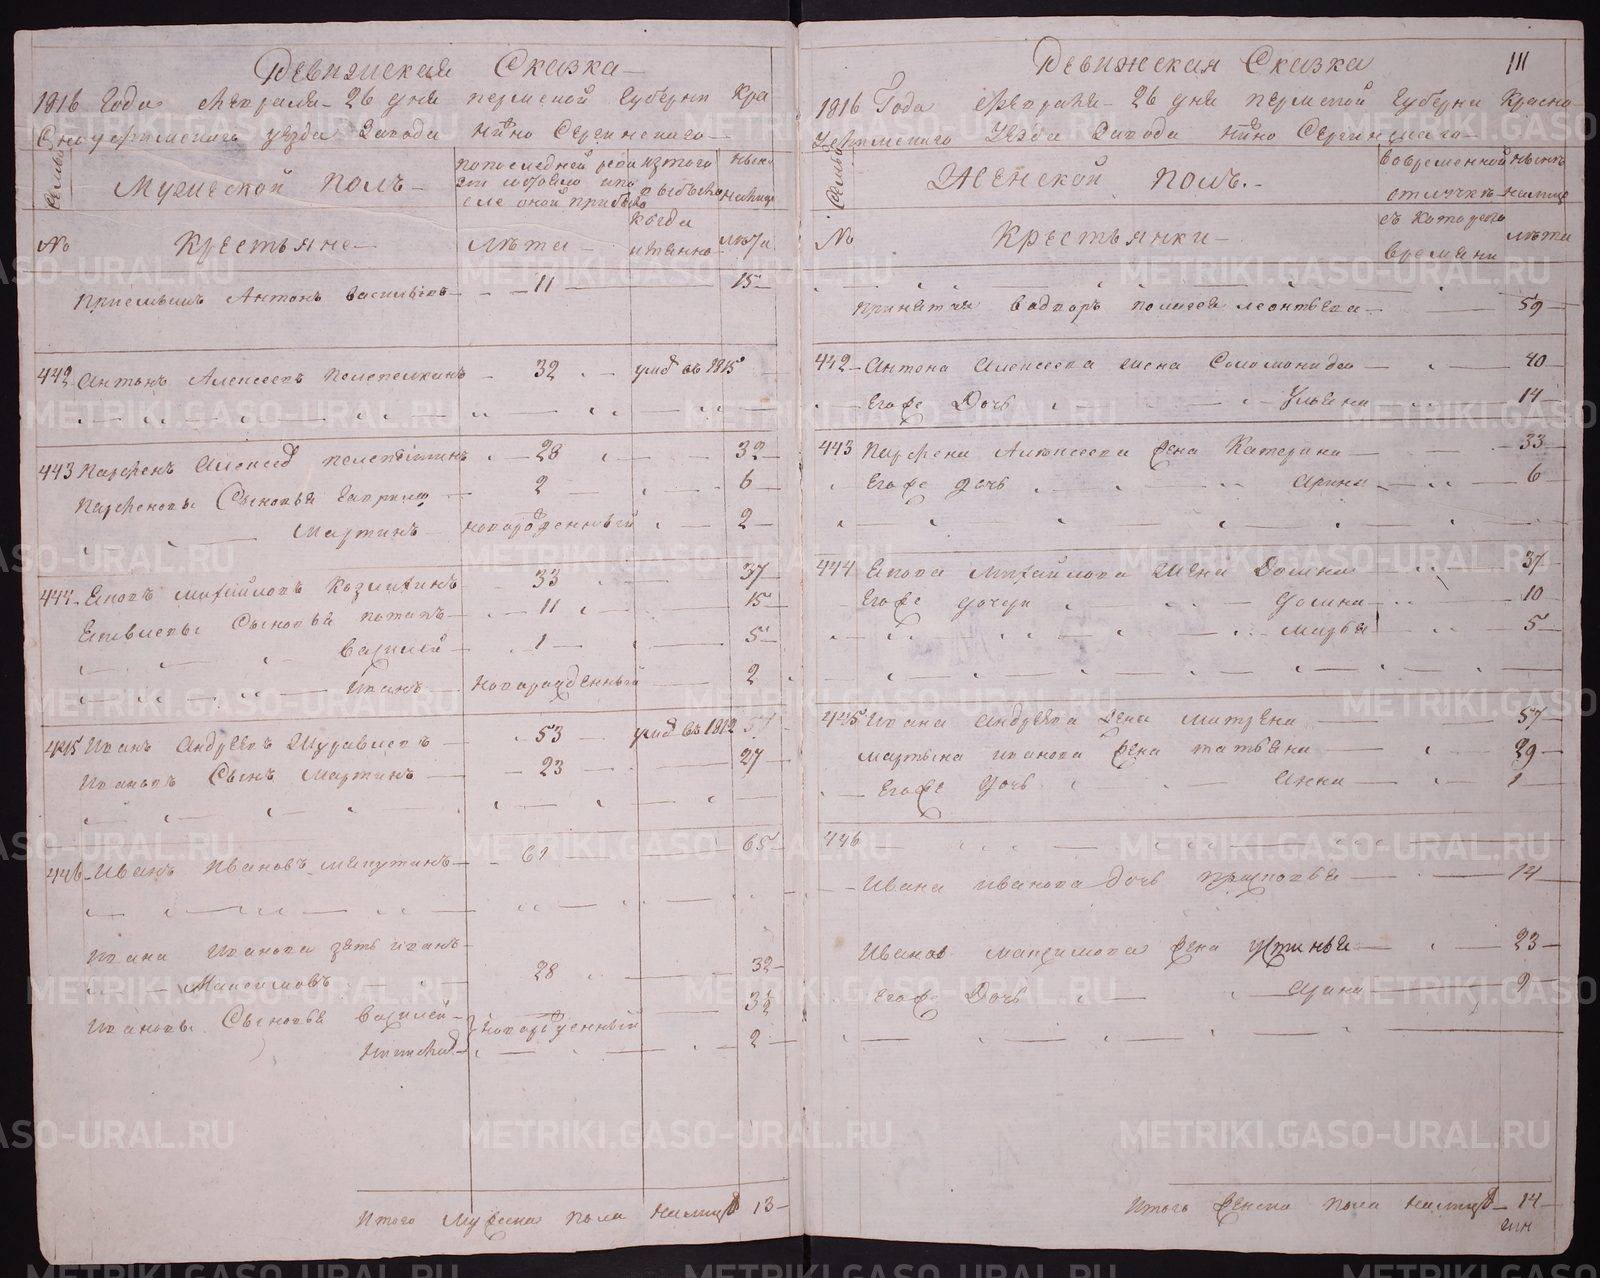 Ревизская Сказка
1816 Года Февраля 26 дня пермской Губернии Кра
Сноуфимскаго уезда Завода Нижно Сергинскаго
Семьи
Мужеской полъ
по последней реви
зіи состояло или
после оной прибыло
изъ того
выбыло
когда
имянно
ныне
налицо
№ Крестьяне лѣта лѣта
Приемышъ Антонъ Васильевъ 11 15
442 Антонъ Алексеевъ 32 умеръ въ 1815
443 Парфенъ Алексеевъ 28 32
Парфеновы Сыновья Гаврило 2 6
Мартинъ новорожденный 2
444 Михайловъ 33 37
Сыновья Потапъ 11 15
Василей 1 5
Иванъ новорожденный 2
445 Иванъ Андреевъ Журавлевъ 53 умеръ въ 1812 57
Ивановъ Сынъ Мартинъ 23 27
446 Иванъ Ивановъ 61 65
Ивана Иванова зять Иванъ
Максимовъ 28 32
Ивановы Сыновья Василей 3½
новорожденный
2
Итого Мужеска пола налицо 13
Ревижская Сказка 111
1816 Года Февраля 26 дня пермской Губернии Красно
Уфимскаго Уезда Завода Нижно Сергинскаго
Семьи
Женской полъ
во временной
отлучкѣ
съ котораго
времени
ныне
налицо
№ Крестьянки лѣта
Леонтьева 59
442 Антона Алексеева жена Соломонида 40
Его же Дочь Ульяна 14
443 Парфена Алексеева жена Катерина 33
Его же дочь Арина 6
444 Михайлова жена Домна 37
Его же дочери 10
Марья 5
445 Ивана Андреева жена Матрена 57
Мартына Иванова жена Татьяна 29
Его же дочь Анна 1
446
Ивана Иванова дочь Прасковья 14
Ивана Максимова жена Устинья 23
Его же Дочь Арина 9
Итого женска пола налицо 14